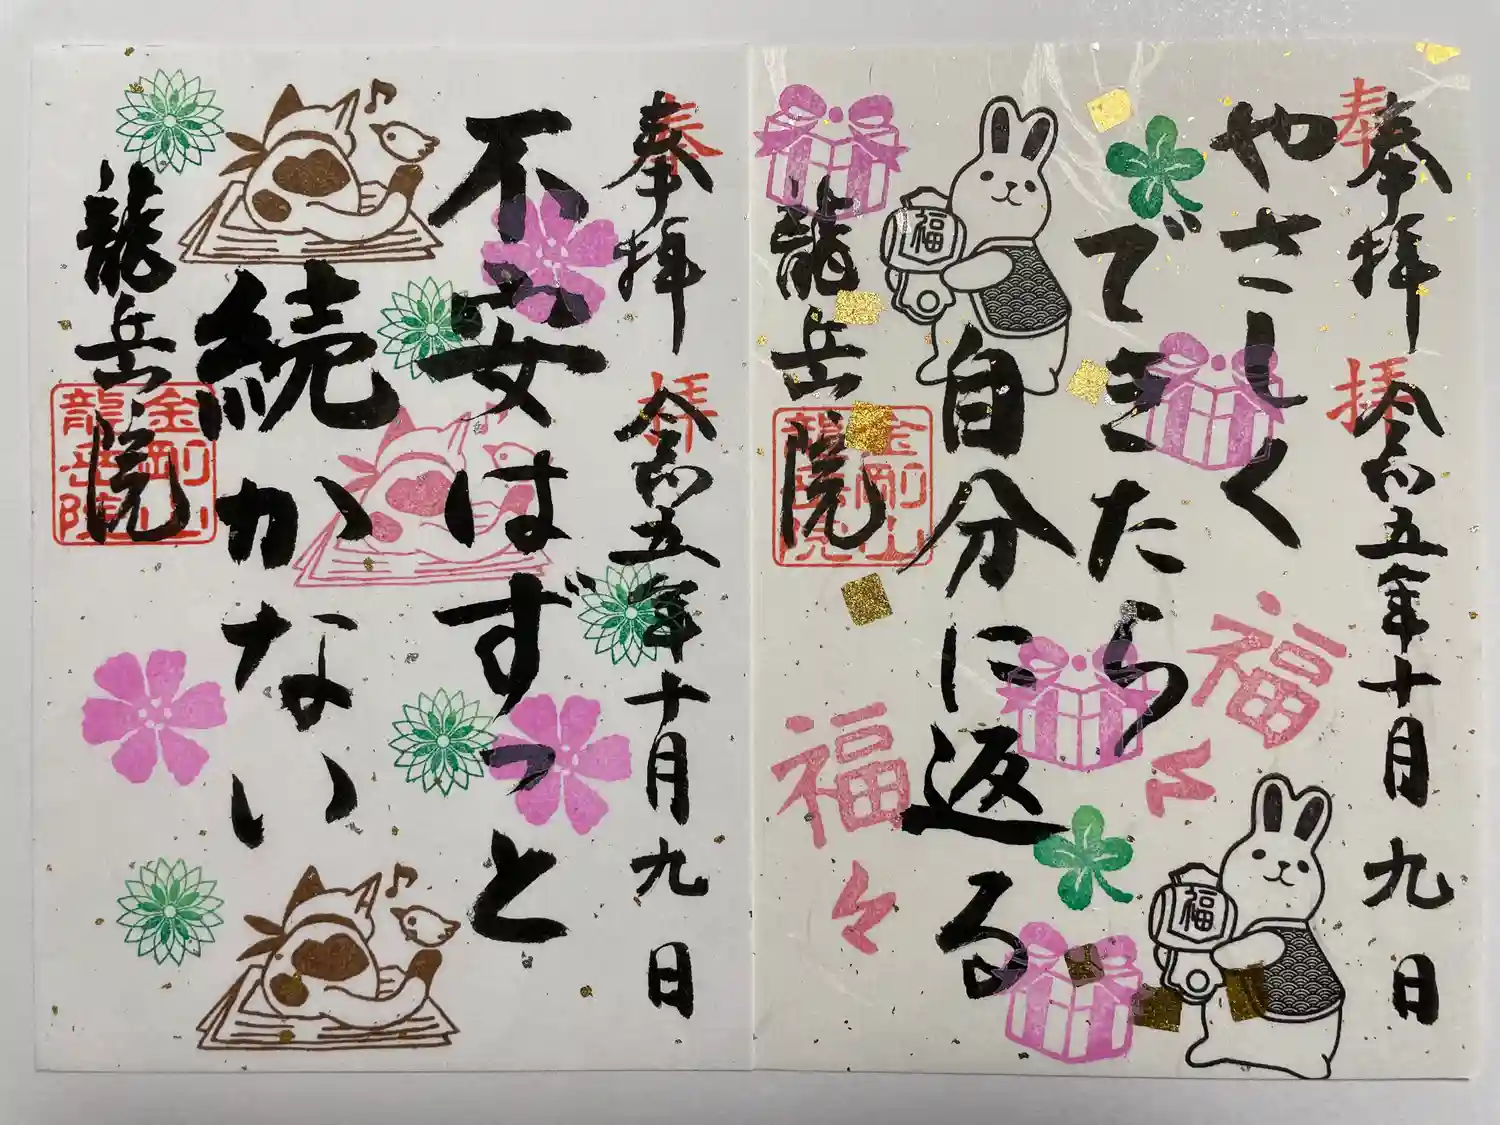 奉拝
奉拝 令和五年十月九日
やさしく
できたら
自分に返る
福々
福々
福
福
龍岳院
金剛山
龍岳院
奉拝
奉拝 令和五年十月九日
不安はずっと
続かない
龍岳院
金剛山
龍岳院